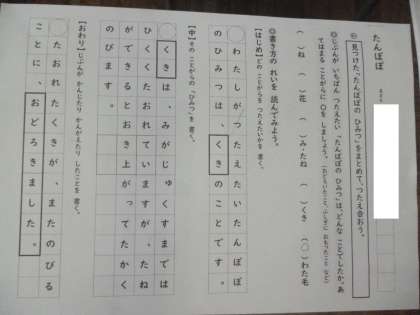 たんぽぽ
なまえ
㋲ 見つけた「たんぽぽの ひみつ」をまとめて、つたえ合おう。
◎じぶんが いちばん つたえたい「たんぽぽの ひみつ」は、どんな ことでしたか。あ
てはまる ことがらに ○を しましょう。
( )ね ( )花 ( )み・たね ( )くき (○)わた毛
◎書き方の れいを 読んでみよう。
【はじめ】どの ことがらを つたえたいかを 書く。
わたしがつたえたいたんぽぽ
のひみつは、くきのことです。
【中】その ことがらの「ひみつ」を 書く。
くきは、みがじゅくすまでは
ひくくたおれていますが、たね
ができるとおき上がってたかく
のびます。
【おわり】じぶんが かんじたり かんがえたり したことを 書く。
たおれたくきが、またのびる
ことに、おどろきました。